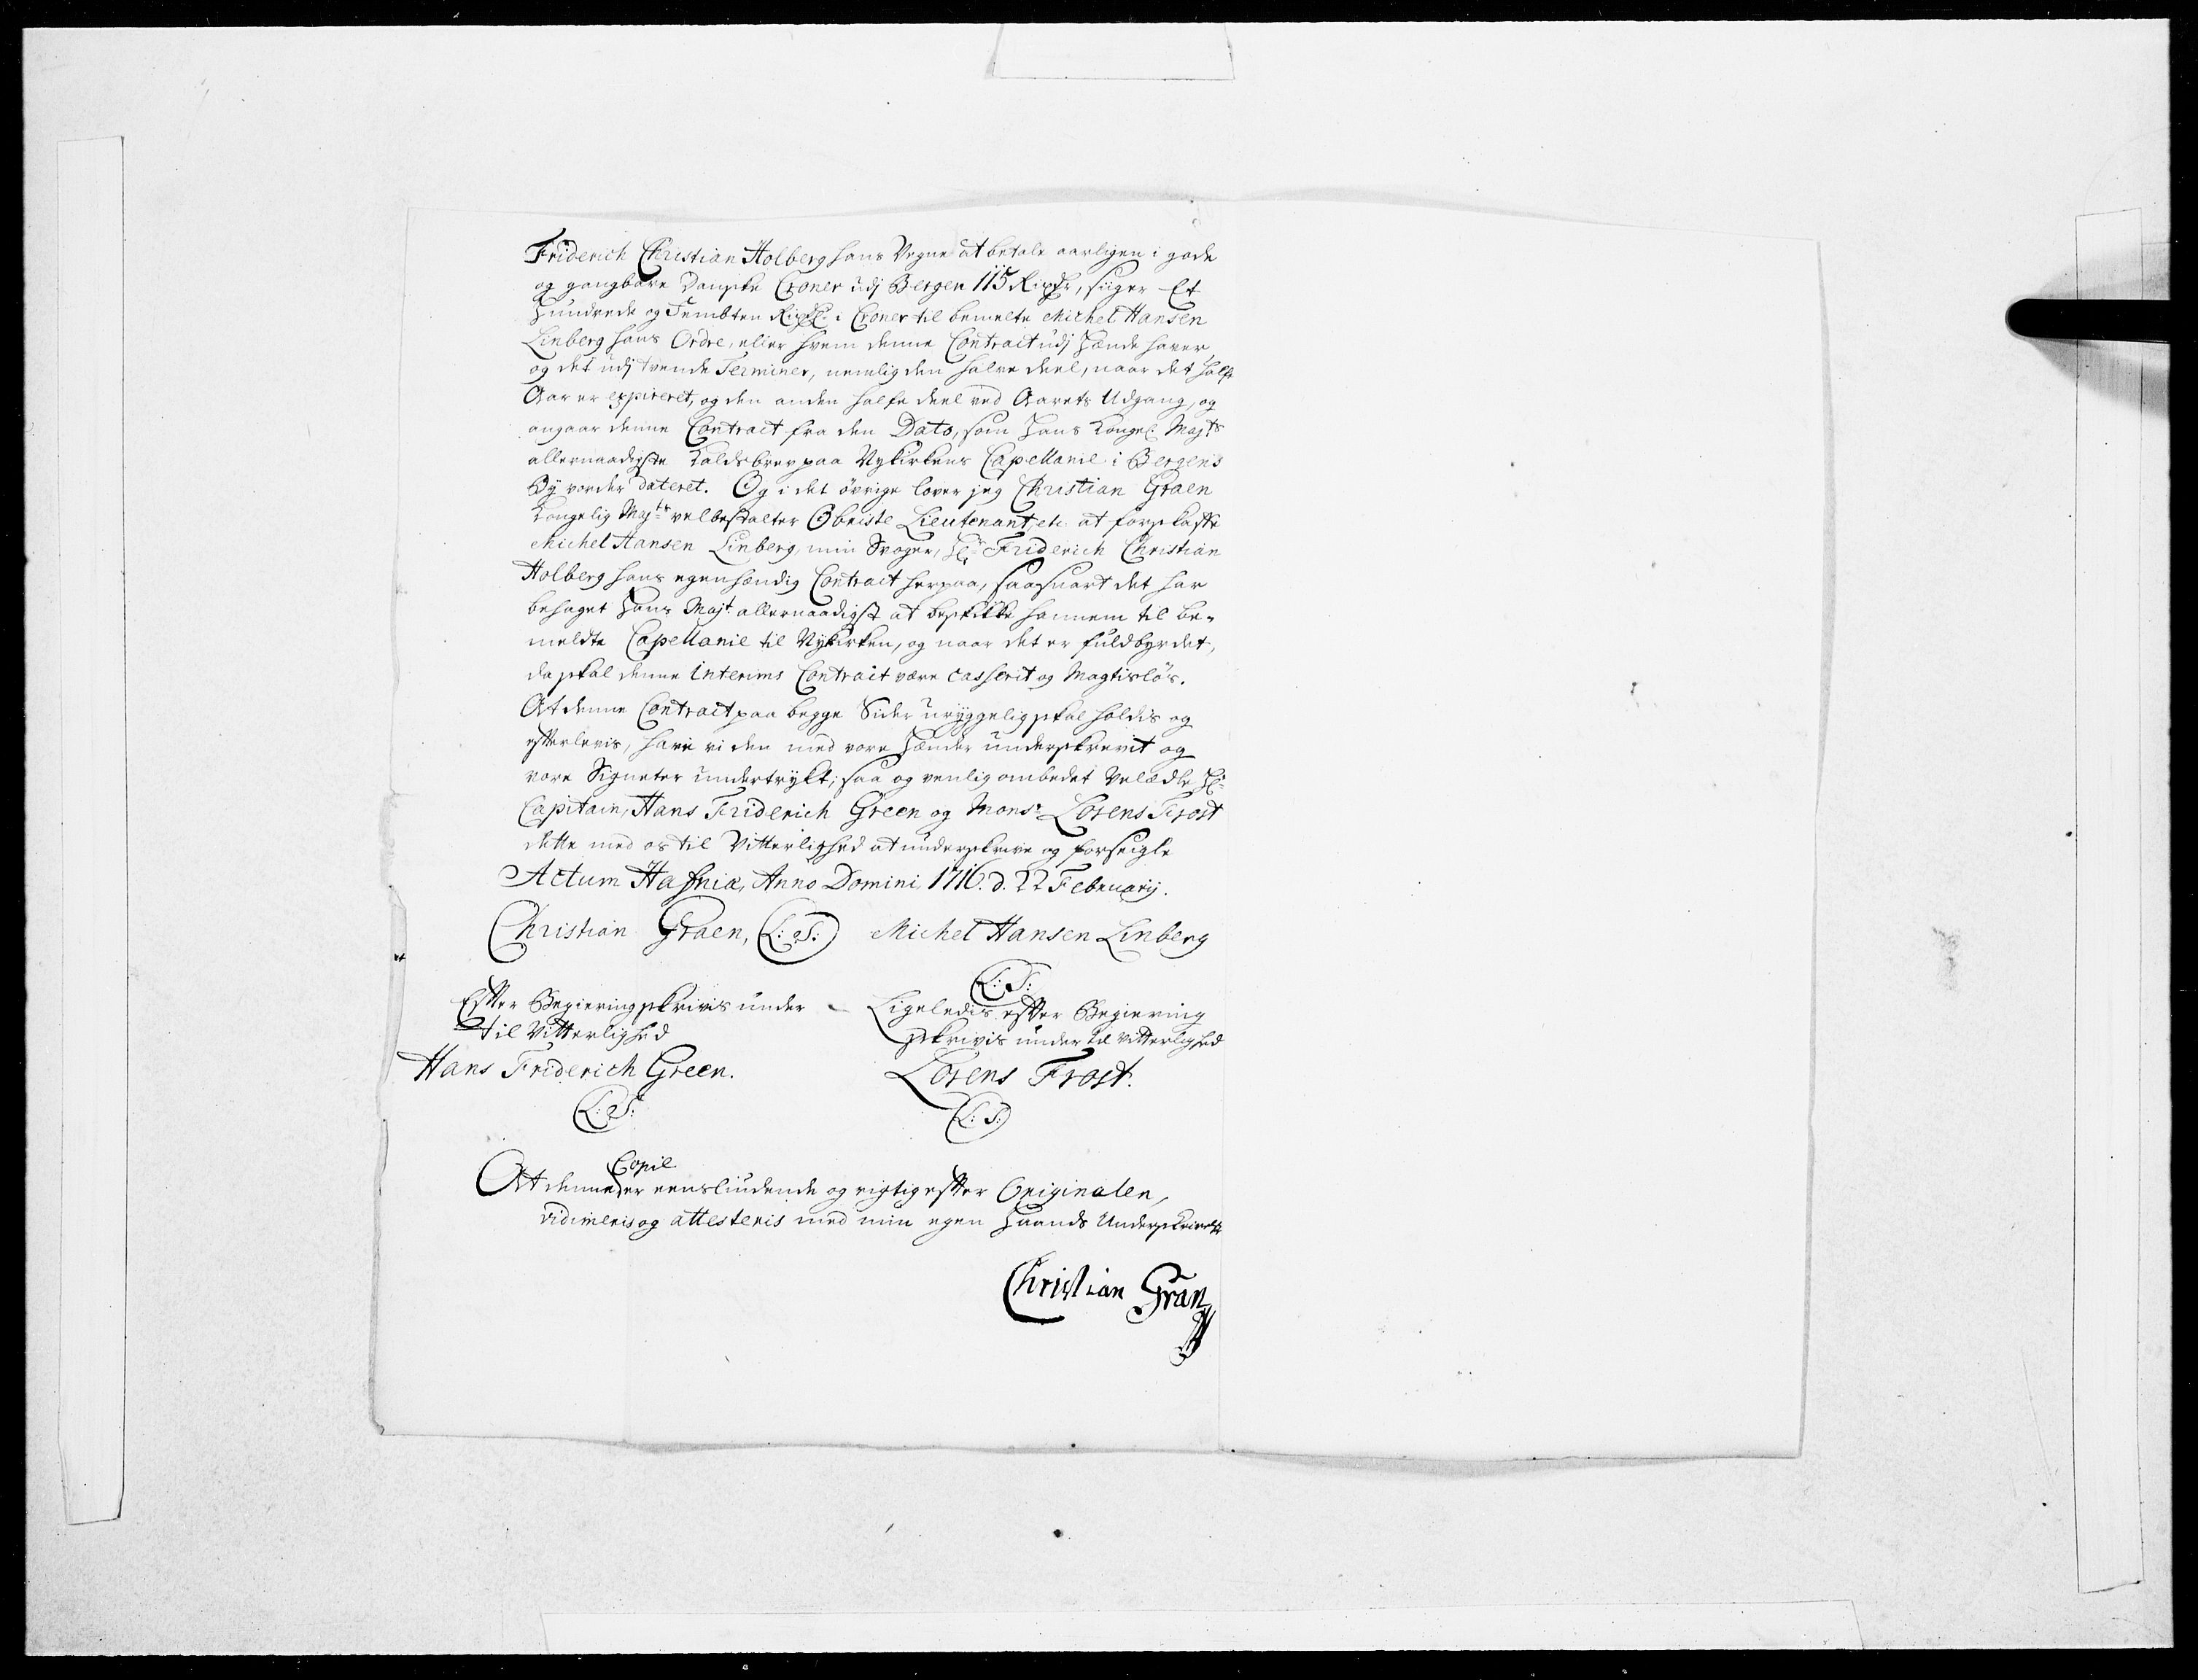 Friderich Christian Holberg hans Vegne at betale aarligen i gode
og gangbare Danske Croner udj Bergen 115 Rixdr, siiger Et
Hundrede og Fembten Rigsdlr i Croner til bemelte Michel Hansen
Linberg hans Ordre, eller hvem denne Contract udj Hænde haver,
og det udj tvende Terminer, nemlig den halve deel, naar det halfe
Aar er expireret, og den anden halfe deel ved Aarets Udgang, og
angaar denne Contract fra den Dato, som Hans Kongel Majts
allernaadigste Kaldsbrev paa Nykirkens Capellanie i Bergens
By vorder dateret. Og i det øvrige lover jeg Christian Graen
Kongelig Majts velbestalter Obriste Lieutenant, etc. at forskaffe
Michel Hansen Linberg, min Svoger, Hr Friderich Christian
Holberg hans egenhændig Contract herpaa, saasnart det har
behaget Hans Majt allernaadigst at beskikke hannem til be-
meldte Capellanie til Nykirken, og naar det er fuldbyrdet,
da skal denne Interims Contract være casserit og Magtisløs.
At denne Contract paa begge Sider uryggelig skal holdis og
efterlevis, have vi den med vore Hænder underskrevit og
vore Signeter undertrykt; saa og venlig ombedet Velædle Hr
Capitain, Hans Friderich Green og Monsr Lorens Frost
dette med os til Vitterlighed at underskrive og forseigle
Actum Hafniæ, Anno Domini, 1716. d. 22 February.
Christian Graen, (L:S:) Michel Hansen Linberg
(L:S:)
Efter Begiering skrivis under
til Vitterlighed
Hans Friderich Green.
(L:S:)
Ligeledis efter Begiering
skrivis under til vitterlighed
Lorens Frost.
(L:S:)
Copie
At denne er eensliudende og rigtig efter Originalen,
vidimeris og attesteris med min egen Haands Underskrivelse
Christian Gran